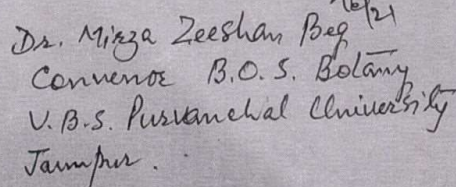 /6/21
Dr. Mirza Zeeshan Beg
Convenor B.O.S. Botany
V.B.S. Purvanchal University
Jaunpur.